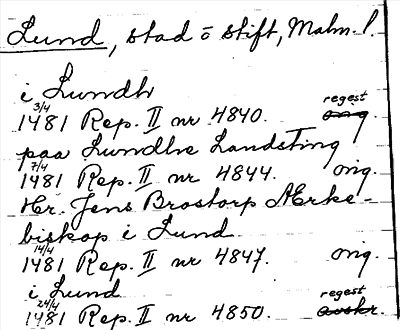 Lund, stad o stift, Malm. l.
i Lundh
3/4 regest
1481 Rep. II nr 4840. orig.
paa Lundhe Landsting
7/4
1481 Rep. II nr 4844. orig.
Hr. Jens Brostorp Ærke-
biskop i Lund
14/4
1481 Rep. II nr 4847. orig.
i Lund
24/4 regest
1481 Rep. II nr 4850. avskr.